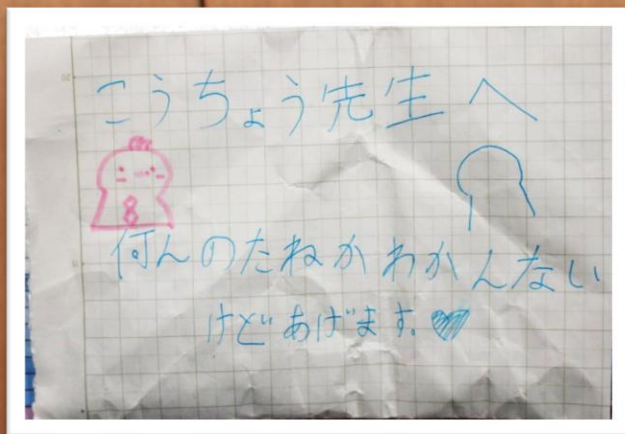 こうちょう先生へ
何んのたねかわかんない
けどあげます。♥